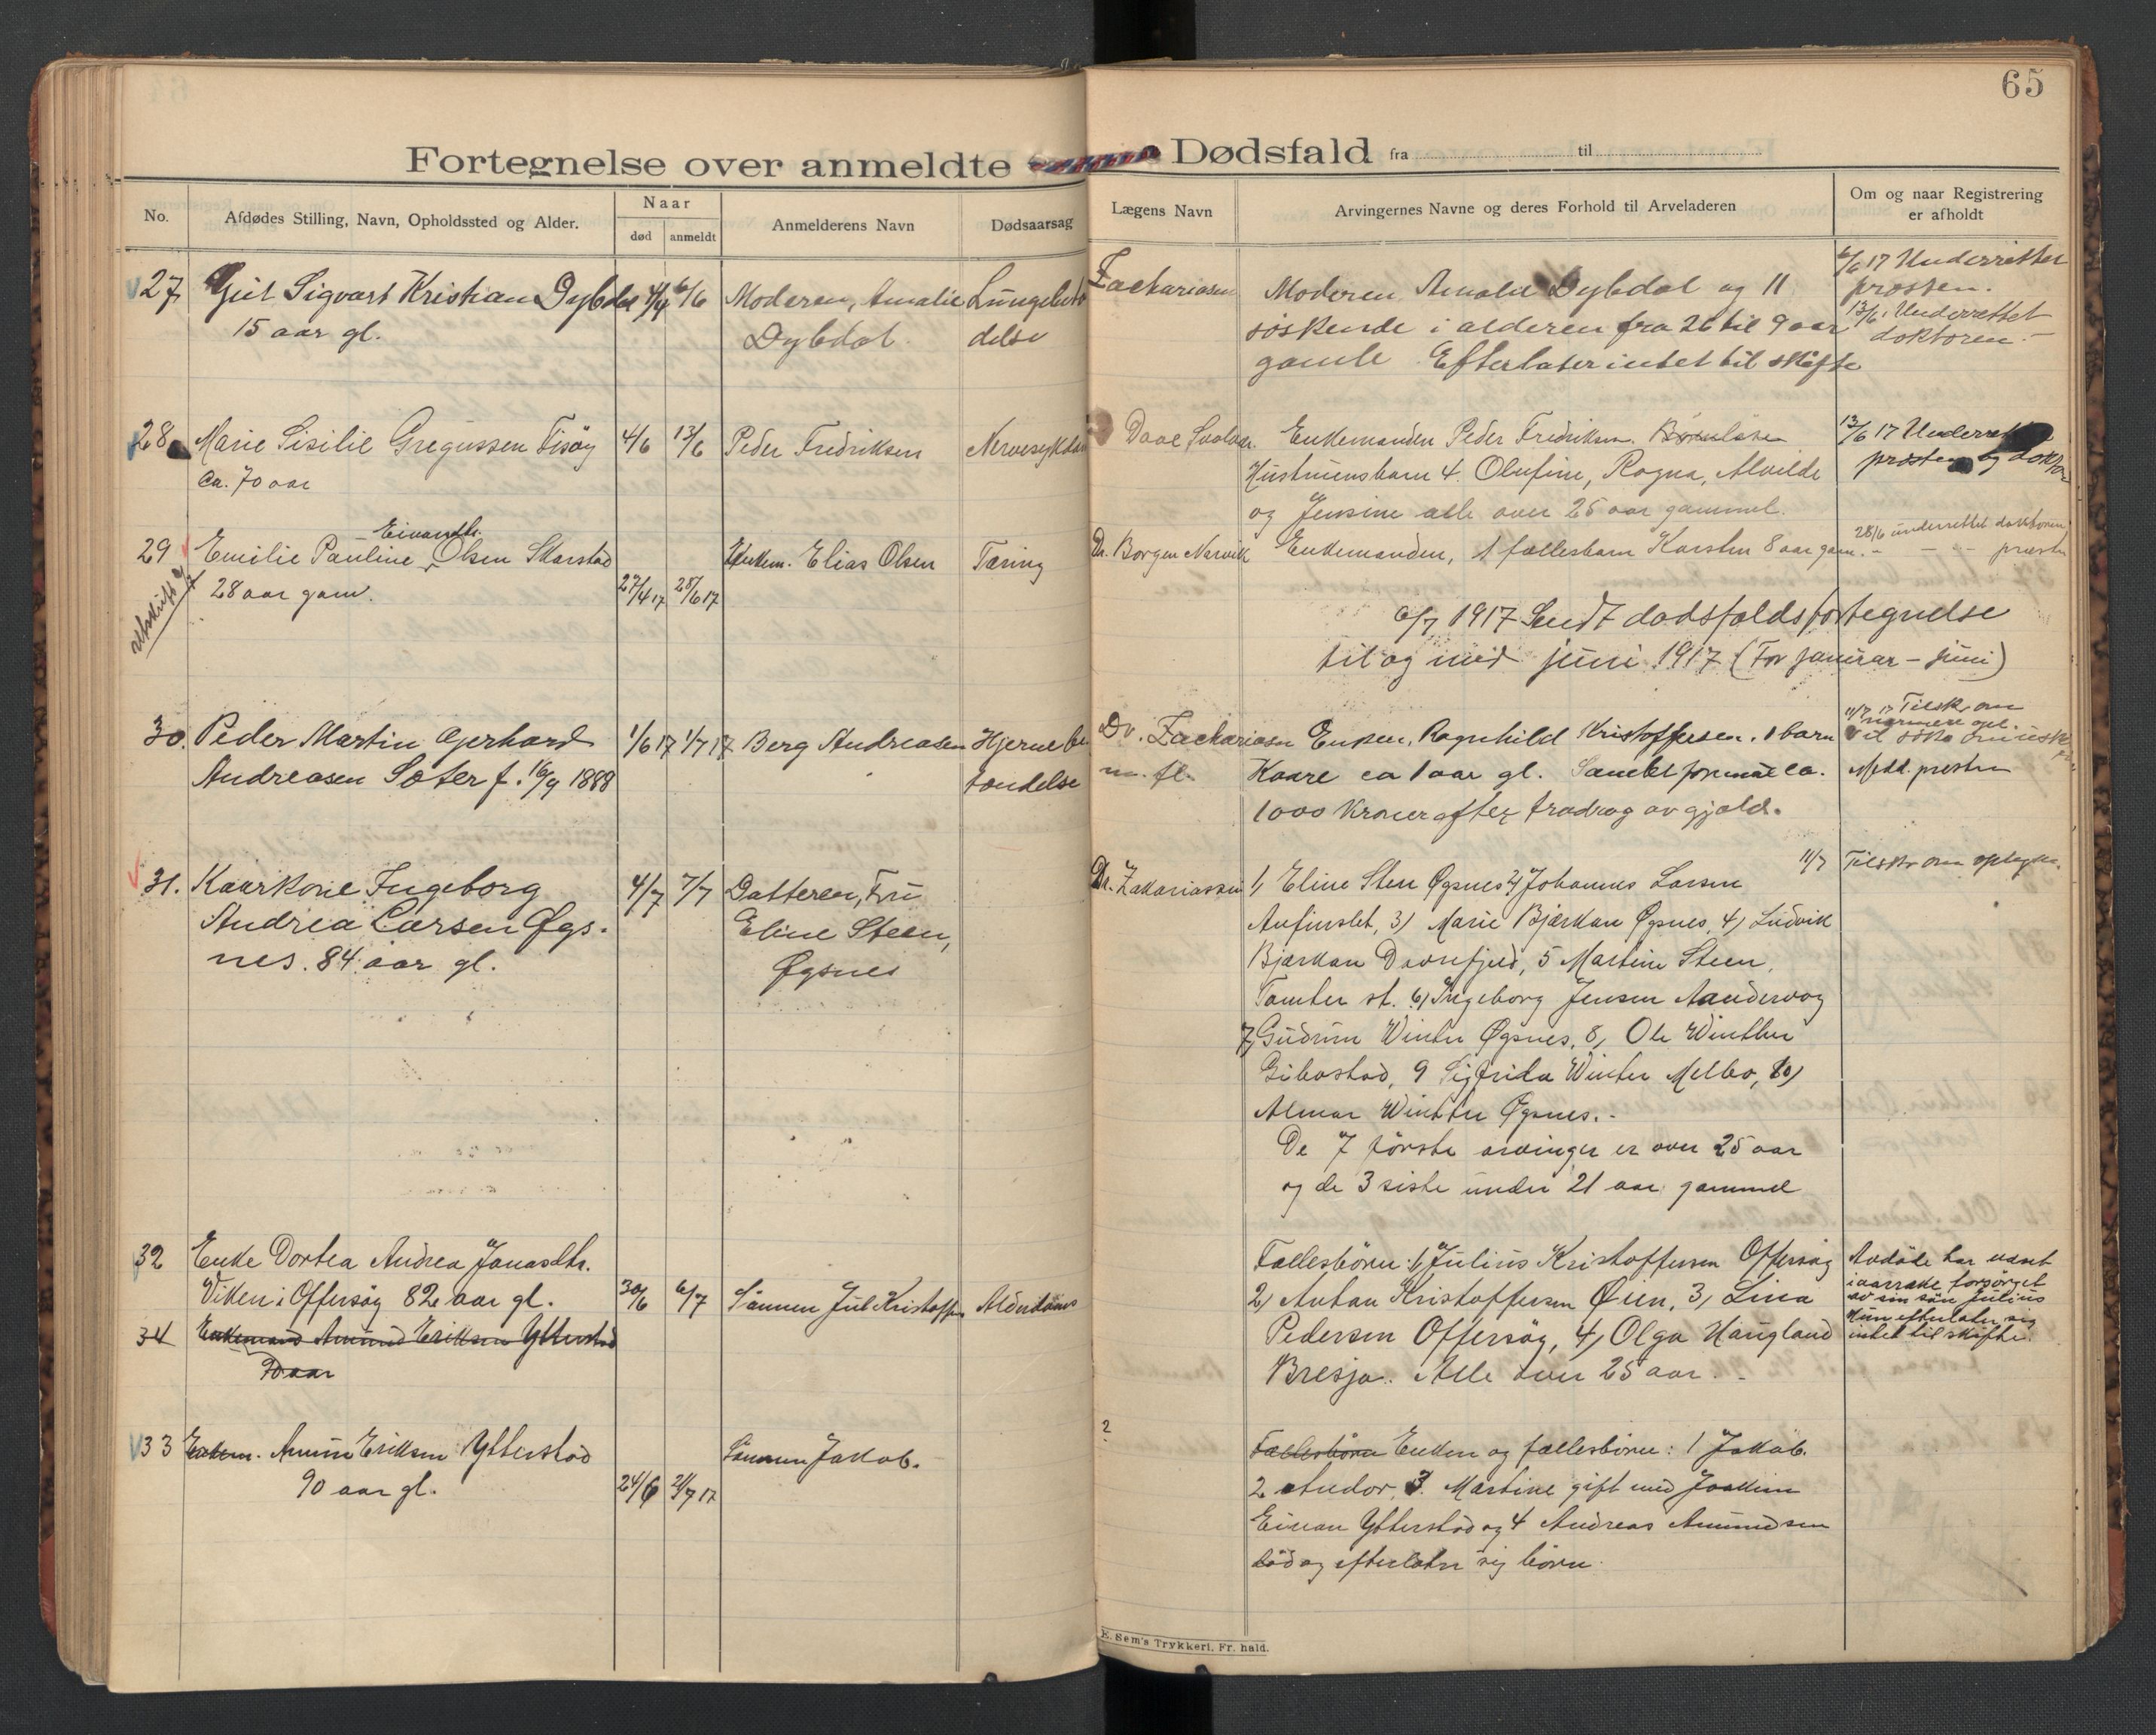 65
Fortegnelse over anmeldte Dødsfald fra til
No.
Afdødes Stilling, Navn, Opholdssted og Alder.
Naar
død
anmeldt
Anmelderens Navn
Dødsaarsag
Lægens Navn
Arvingernes Navne og deres Forhold til Arveladeren
Om og naar Registrering
er afholdt
27 Gut Sigvart Kristian Dybdal 6/6 Moderen, Amalie Lungebete
15 aar gl. Dybdal delse
Zachariasen Moderen Amalie Dybdal og 11 6/6 17 Underrettet
söskende i alderen fra 26 til 9 aar presten.
gamle. Efterlater intet til skifte 13/6 Underrettet
doktoren.
28 Marie Sisilie Gregussen Tisöy 4/6 13/6 Peder Fredriksen Nervesykdom
Ca. 70 aar
Enkemanden Peder Fredriksen. Barnlöse 13/6 17 Underrettet
Hustruens barn 4. Olufine, Ragna, Alvilde presten og doktor
og Jensine alle over 25 aar gammel.
29 Emilie Pauline Eivardtr. Olsen Skarstad Enkem. Elias Olsen Tæring
28 aar gam. 27/4 17 28/6 17
avskrift
Dr. Borgen Narvik Enkemanden, 1 fællesbarn Karsten 8 aar gam. 28/6 underrettet doktoren
- - - presten
6/7 1917 Sendt dödsfaldsfortegnelse
til og med juni 1917 (For januar - juni)
30. Peder Martin Gerhard 1/6 17 1/7 17 Berg Andreasen Hjernebe
Andreasen Sæter f. 16/9 1888 tændelse
Dr. Zachariasen Enken, Ragnhild Kristoffersen. 1 barn 11/7 17 Tilsk. om
m. fl. Kaare ca 1 aar gl. Samlet formue ca. nærmere opl.
1000 kroner efter fradrag av gjæld. Medd. presten
31. Kaarkone Ingeborg 4/7 7/7 Datteren, Fru
Andrea Larsen Øgs- Eline Steen,
nes. 84 aar gl. Øgsnes
Dr. Zakariassen 1, Eline Steen Øgsnes 2, Johannes Larsen 11/7 Tilskr om oplysn.
Anfinslet, 3) Marie Bjørkan Øgsnes, 4, Ludvik
Bjørkan Dovrefjeld, 5 Martine Steen,
Tomter st. 6, Ingeborg Jensen Aandervaag
7, Gudrun Winter Øgsnes, 8, Ole Winther
Gibostad, 9 Sigfrida Winter Melbo, 10)
Almar Winther Øgsnes.-
De 7 förste arvinger er over 25 aar
og de 3 siste under 21 aar gammel
32 Enke Dortea Andrea Jonasdtr.
Viken i Offersöy 82 aar gl. 30/6 6/7 Sønnen Jul. Kristoffersen Alderdoms
Fællesbörn: 1, Julius Kristoffersen Offersöy Avdöde har været
2, Anton Kristoffersen Øien, 3, Lina i aarrække forsörget
Pedersen Offersöy, 4, Olga Haugland av sin sön Julius
Bresja. Alle over 25 aar. Hun efterlater sig
intet til skifte.
34 Enkemand Amund Eriksen Ytterstad
90 aar
33 Enkem. Amun Eriksen Ytterstad Sönnen Jakob.
90 aar gl. 24/6 2/7 17
? Fællesbörn Enken og fællesbörn: 1 Jakob.
2 Andor, 3. Martine gift med Joakim
Einan Ytterstad og 4 Andreas Amundsen
död og efterlater sig börn.
E. Sem's Trykkeri. Fr. hald.